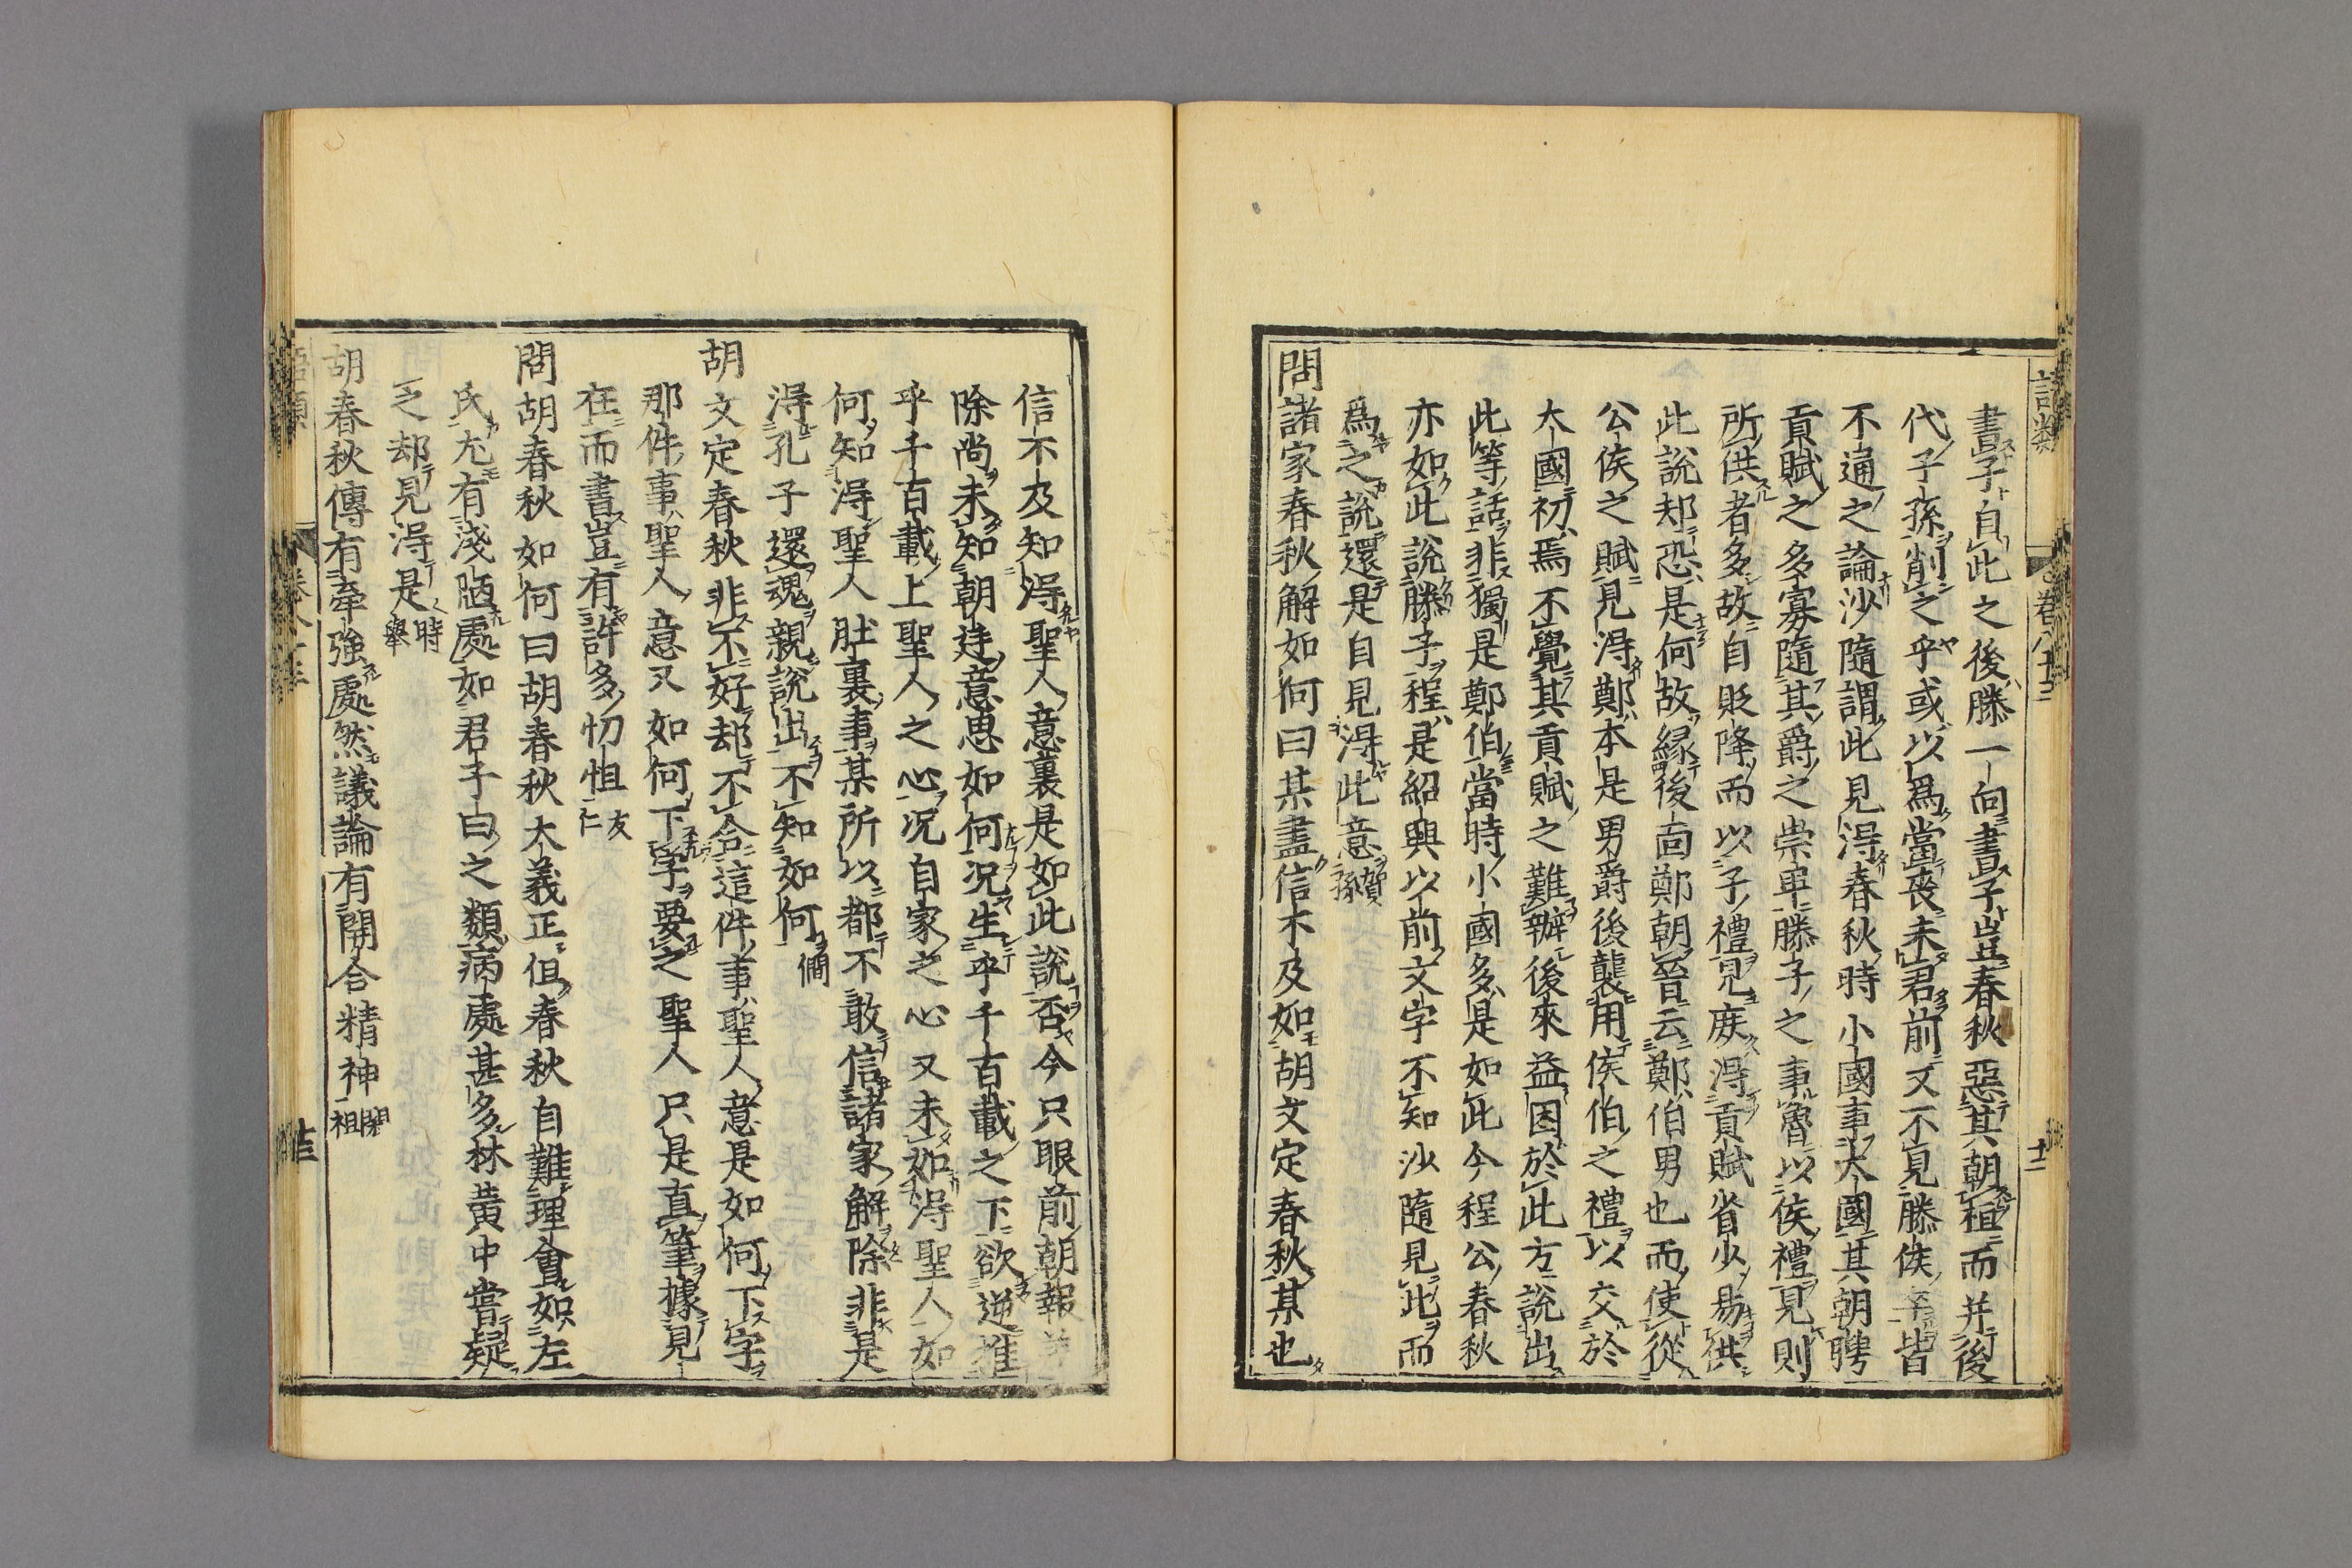 語類
卷八十三
十二
書子自此之後滕一向書子豈春秋惡其朝桓而并後
代子孫削之乎或以爲當喪未君前又不見滕侯卒皆
不通之論沙隨謂此見得春秋時小國事大國其朝聘
貢賦之多寡隨其爵之崇卑滕子之事魯以侯禮見則
所供者多故自貶降而以子禮見庶得貢賦省少易供
此說却恐是何故緣後面鄭朝晉云鄭伯男也而使從
公侯之賦見得鄭本是男爵後襲用侯伯之禮以交於
大國初焉不覺其貢賦之難辦後來益困於此方說出
此等話非獨是鄭伯當時小國多是如此今程公春秋
亦如此說滕子程是紹興以前文字不知沙隨見此而
爲之說還是自見得此意賀孫
問諸家春秋解如何曰某盡信不及如胡文定春秋某也
信不及知得聖人意裏是如此說否今只眼前朝報差
除尚未知朝廷意思如何況生乎千百載之下欲逆推
乎千百載上聖人之心況自家之心又未如得聖人如
何知得聖人肚裏事某所以都不敢信諸家解除非是
得孔子還魂親說出不知如何僩
胡文定春秋非不好却不合這件事聖人意是如何下字
那件事聖人意又如何下字要之聖人只是直筆據見
在而書豈有許多忉怛友仁
問胡春秋如何曰胡春秋大義正但春秋自難理會如左
氏尤有淺陋處如君子曰之類病處甚多林黃中嘗疑
之却見得是時舉
胡春秋傳有牽強處然議論有開合精神閎祖
語類
卷八十三
十三